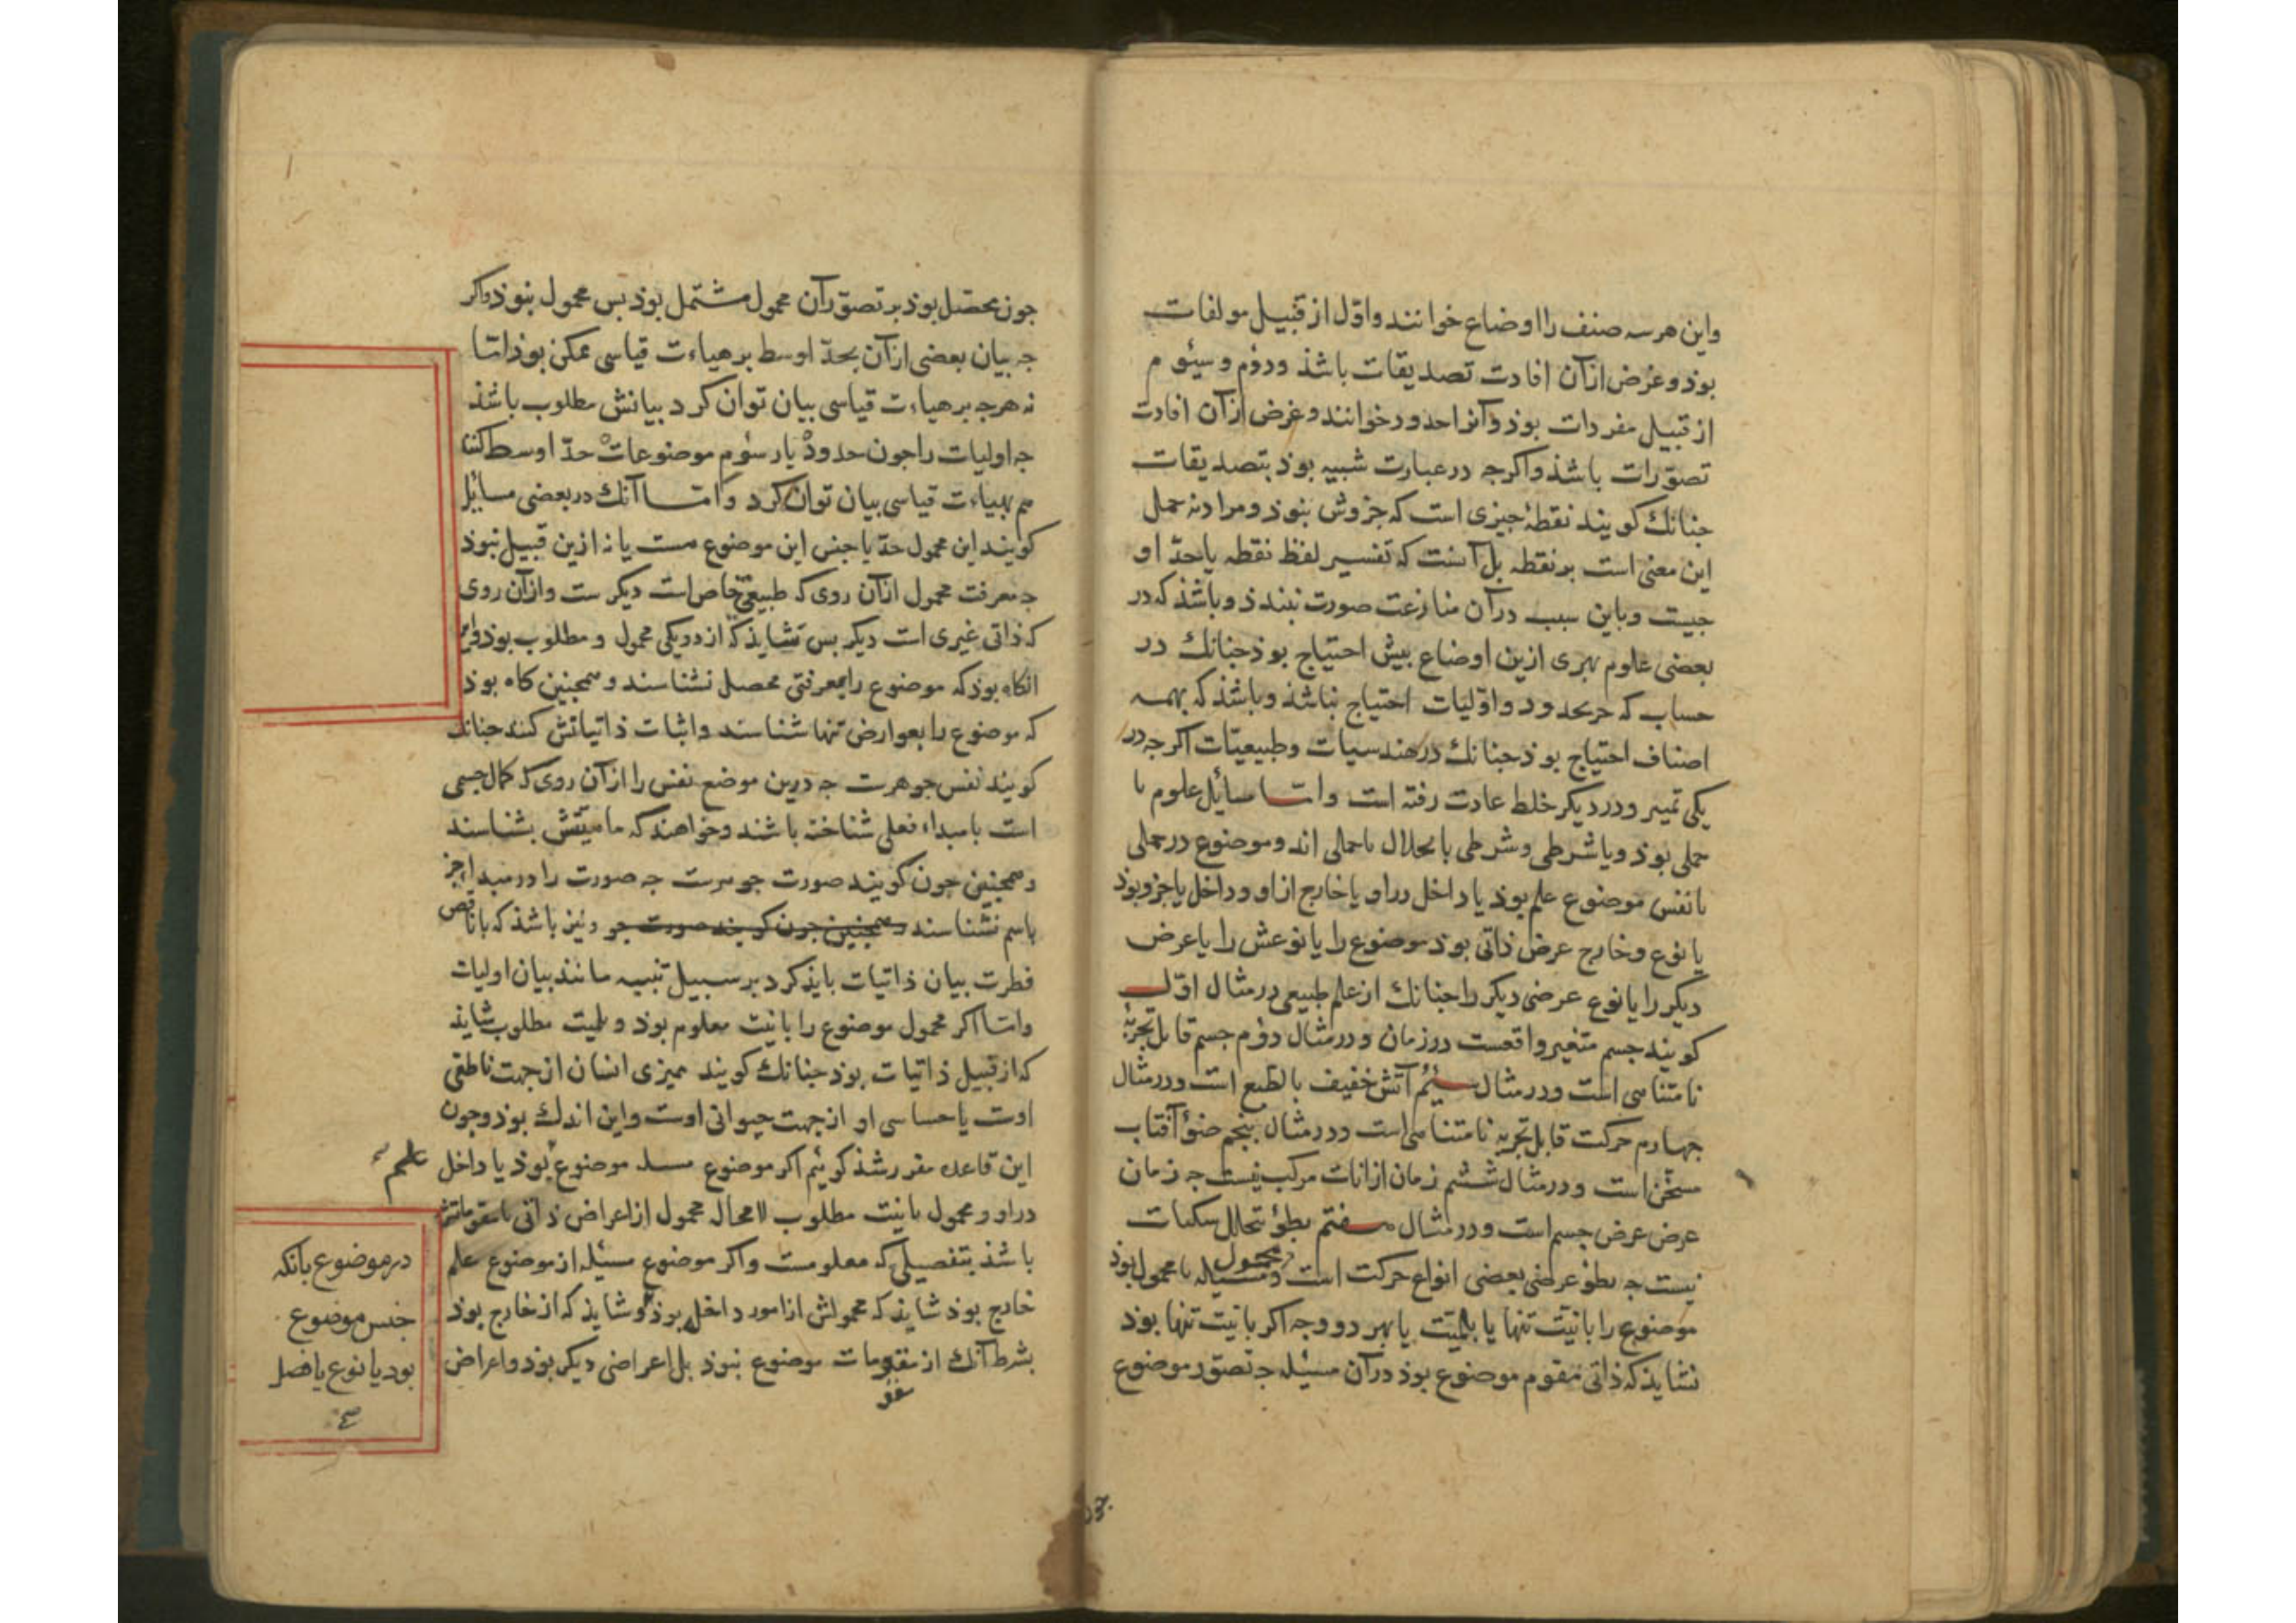 واین هر سه صنف را اوضاع خوانند واوّل از قبیل مولفات
بوذ وغرض ازان افادت تصدیقات باشذ ودوٗم وسیٗوم
از قبیل مفردات بوذ وآنرا حدود خوانند وغرض ازآن افادت
تصوّرات باشذ واکرجه درعبارت شبیه بوذ بتصدیقات
جنانك کویند نقطهٔ جیزی است که جزوش نبوذ ومراد نه حمل
این معنی است بر نقطه بل آنست که تفسیر لفظ نقطه یا حدّ او
جیست وباین سبب درآن منازعت صورت نبندذ وباشذ که در
بعضی علوم بهری ازین اوضاع بیش احتیاج بوذ جنانك در
حساب که جز بحدود واوّلیات احتیاج نباشذ وباشذ که بهمه
اصناف احتیاج بوذ جنانك درهندسیات وطبیعیّات اکرجه در
یکی تمییز ودر دیکر خلط عادت رفته است وامّا مسائل علوم یا
حملی بوذ ویا شرطی وشرطی بانحلال باحملی اند وموضوع درحملی
یا نفس موضوع علم بوذ یا داخل دراو یا خارج ازاو وداخل یا جزو بوذ
یا نوع وخارج عرض ذاتی بوذ موضوع را یا نوعش را یا عرض
دیکر را یا نوع عرضی دیکر را جنانك از علم طبیعی در مثال اوّل
کویند جسم متغیر واقعست درزمان ودرمثال دوٗم جسم قابل تجزیهٔ
نامتناهی است ودر مثال سیٗم آتش خفیف بالطبع است ودرمثال
جهارم حرکت قابل تجزیه نامتناهی است ودرمثال بنجم ضوٗ آفتاب
مسخّن است ودرمثال ششم زمان ازانات مرکب نیست جه زمان
عرض عرض جسم است ودر مثال هفتم بطوٗ بتخلل سکنات
نیست جه بطوٗ عرضی بعضی انواع حرکت است ومحمول مسیٔله یا محمول بوذ
موضوع را بانیّت تنها یا بلمیّت یا بهر دو وجه اکر بانیّت تنها بوذ
نشایذ که ذاتی مقوم موضوع بوذ درآن مسیٔله جه تصوّر موضوع
جون
جون محصّل بوذ بر تصوّر آن محمول مشتمل بوذ بس محمول نبوذ واکر
جه بیان بعضی ازآن بحدّ اوسط بر هیاءت قیاسی ممکن بوذ امّا
نه هرجه بر هیاءت قیاسی بیان توان کرد بیانش مطلوب باشذ
جه اولیات را جون حدود یا رسوٗم موضوعات حدّ اوسط کنند
هم بهیاءت قیاسی بیان توان کرد وامّا آنك دربعضی مسائل
کویند این محمول حدّ یا جنس این موضوع هست یا نه ازین قبیل نبوذ
جه معرفت محمول ازان روی که طبیعتی خاص است دیکر ست وازآن روی
که ذاتی غیری است دیکر بس نشایذ که از دو یکی محمول و مطلوب بوذ واین
انکاه بوذ که موضوع را بمعرفتی محصل نشناسند وهمجنین کاه بوذ
که موضوع را بعوارض تنها شناسند واثبات ذاتیاتش کنند جنانك
کویند نفس جوهرست جه درین موضع نفس را ازآن روی که کمال جسمی
است یا مبداء فعلی شناخته باشند وخواهند که ماهیّتش بشناسند
وهمجنین جون کویند صورت جوهرست جه صورت را درمبدا جز
باسم نشناسند وهمجنین جون کویند صورت جو ونیز باشذ که با ناقص
فطرت بیان ذاتیات بایذ کرد بر سبیل تنبیه مانند بیان اولیات
وامّا اکر محمول موضوع را بانیّت معلوم بوذ وبلمیت مطلوب شایذ
که از قبیل ذاتیات بوذ جنانك کویند ممیزی انسان از جهت ناطقی
اوست یا حساسی او از جهت حیوانی اوست واین اندك بوذ وجون
این قاعده مقرر شذ کویٔیم اکر موضوع موضوع بوذ یا داخل
علم
دراو ومحمول بانیت مطلوب لا محال محمول از اعراض ذاتی یا مقوماتش
باشذ بتفصیلی که معلومست واکر موضوع مسیٔله از موضوع علم
خارج بوذ شایذ که محمولش ازامور داخل بوذ وشایذ که از خارج بوذ
بشرط آنك از مقومات موضوع نبوذ بل اعراضی دیکر بوذ واعراض
در موضوع بانکه
جنس موضوع
بود یا نوع یا فصل